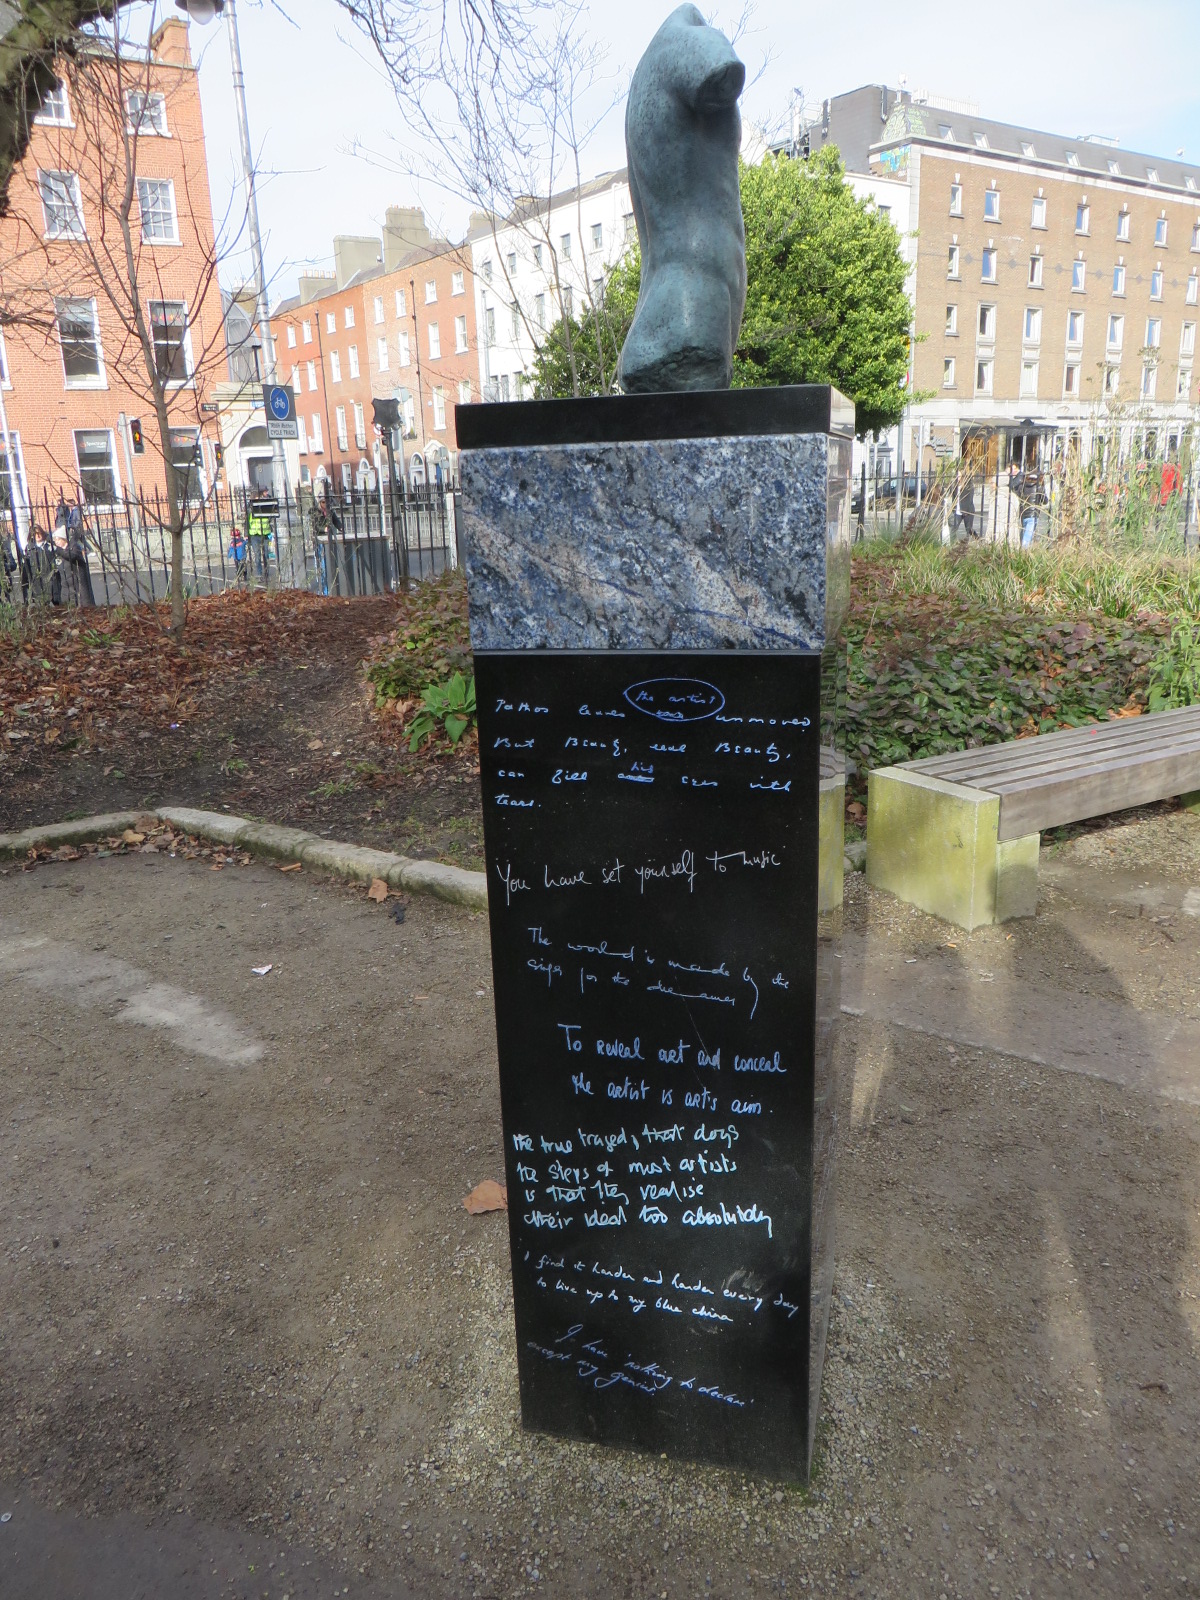 the artist
Pathos leaves unmoved
But Beauty, real Beauty,
his
can fill eyes with
tears.
You have set yourself to music
The world is made by the
singer for the dreamer
To reveal art and conceal
the artist is art's aim.
the true tragedy that dogs
the steps of most artists
is that they realise
their ideal too absolutely
I find it harder and harder every day
to live up to my blue china
I have nothing to declare
except my genius.
CYCLE TRACK